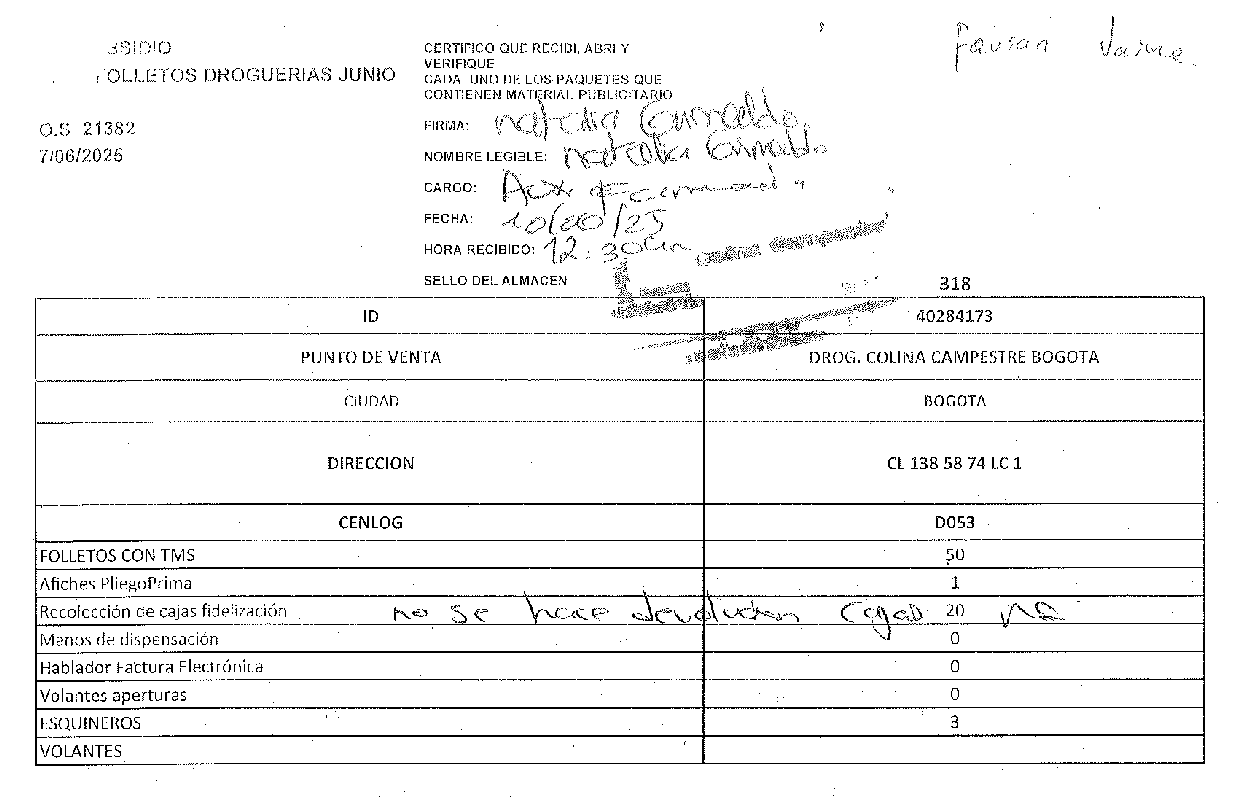 FOLLETOS DROGUERIAS JUNIO
O.S 21382
7/06/2025
CERTIFICO QUE RECIBI, ABRI Y
VERIFIQUE
CADA UNO DE LOS PAQUETES QUE
CONTIENEN MATERIAL PUBLICITARIO
FIRMA: natalia
NOMBRE LEGIBLE: natalia
CARGO: Aux
FECHA:
HORA RECIBIDO: 12:30
SELLO DEL ALMACEN
318
ID 40284173
PUNTO DE VENTA DROG. COLINA CAMPESTRE BOGOTA
CIUDAD BOGOTA
DIRECCION CL 138 58 74 LC 1
CENLOG D053
FOLLETOS CON TMS 50
Afiches PliegoPrima 1
Recoleccción de cajas fidelización no se hace devolucion cajas 20
Manos de dispensación 0
Hablador Factura Electrónica 0
Volantes aperturas 0
ESQUINEROS 3
VOLANTES